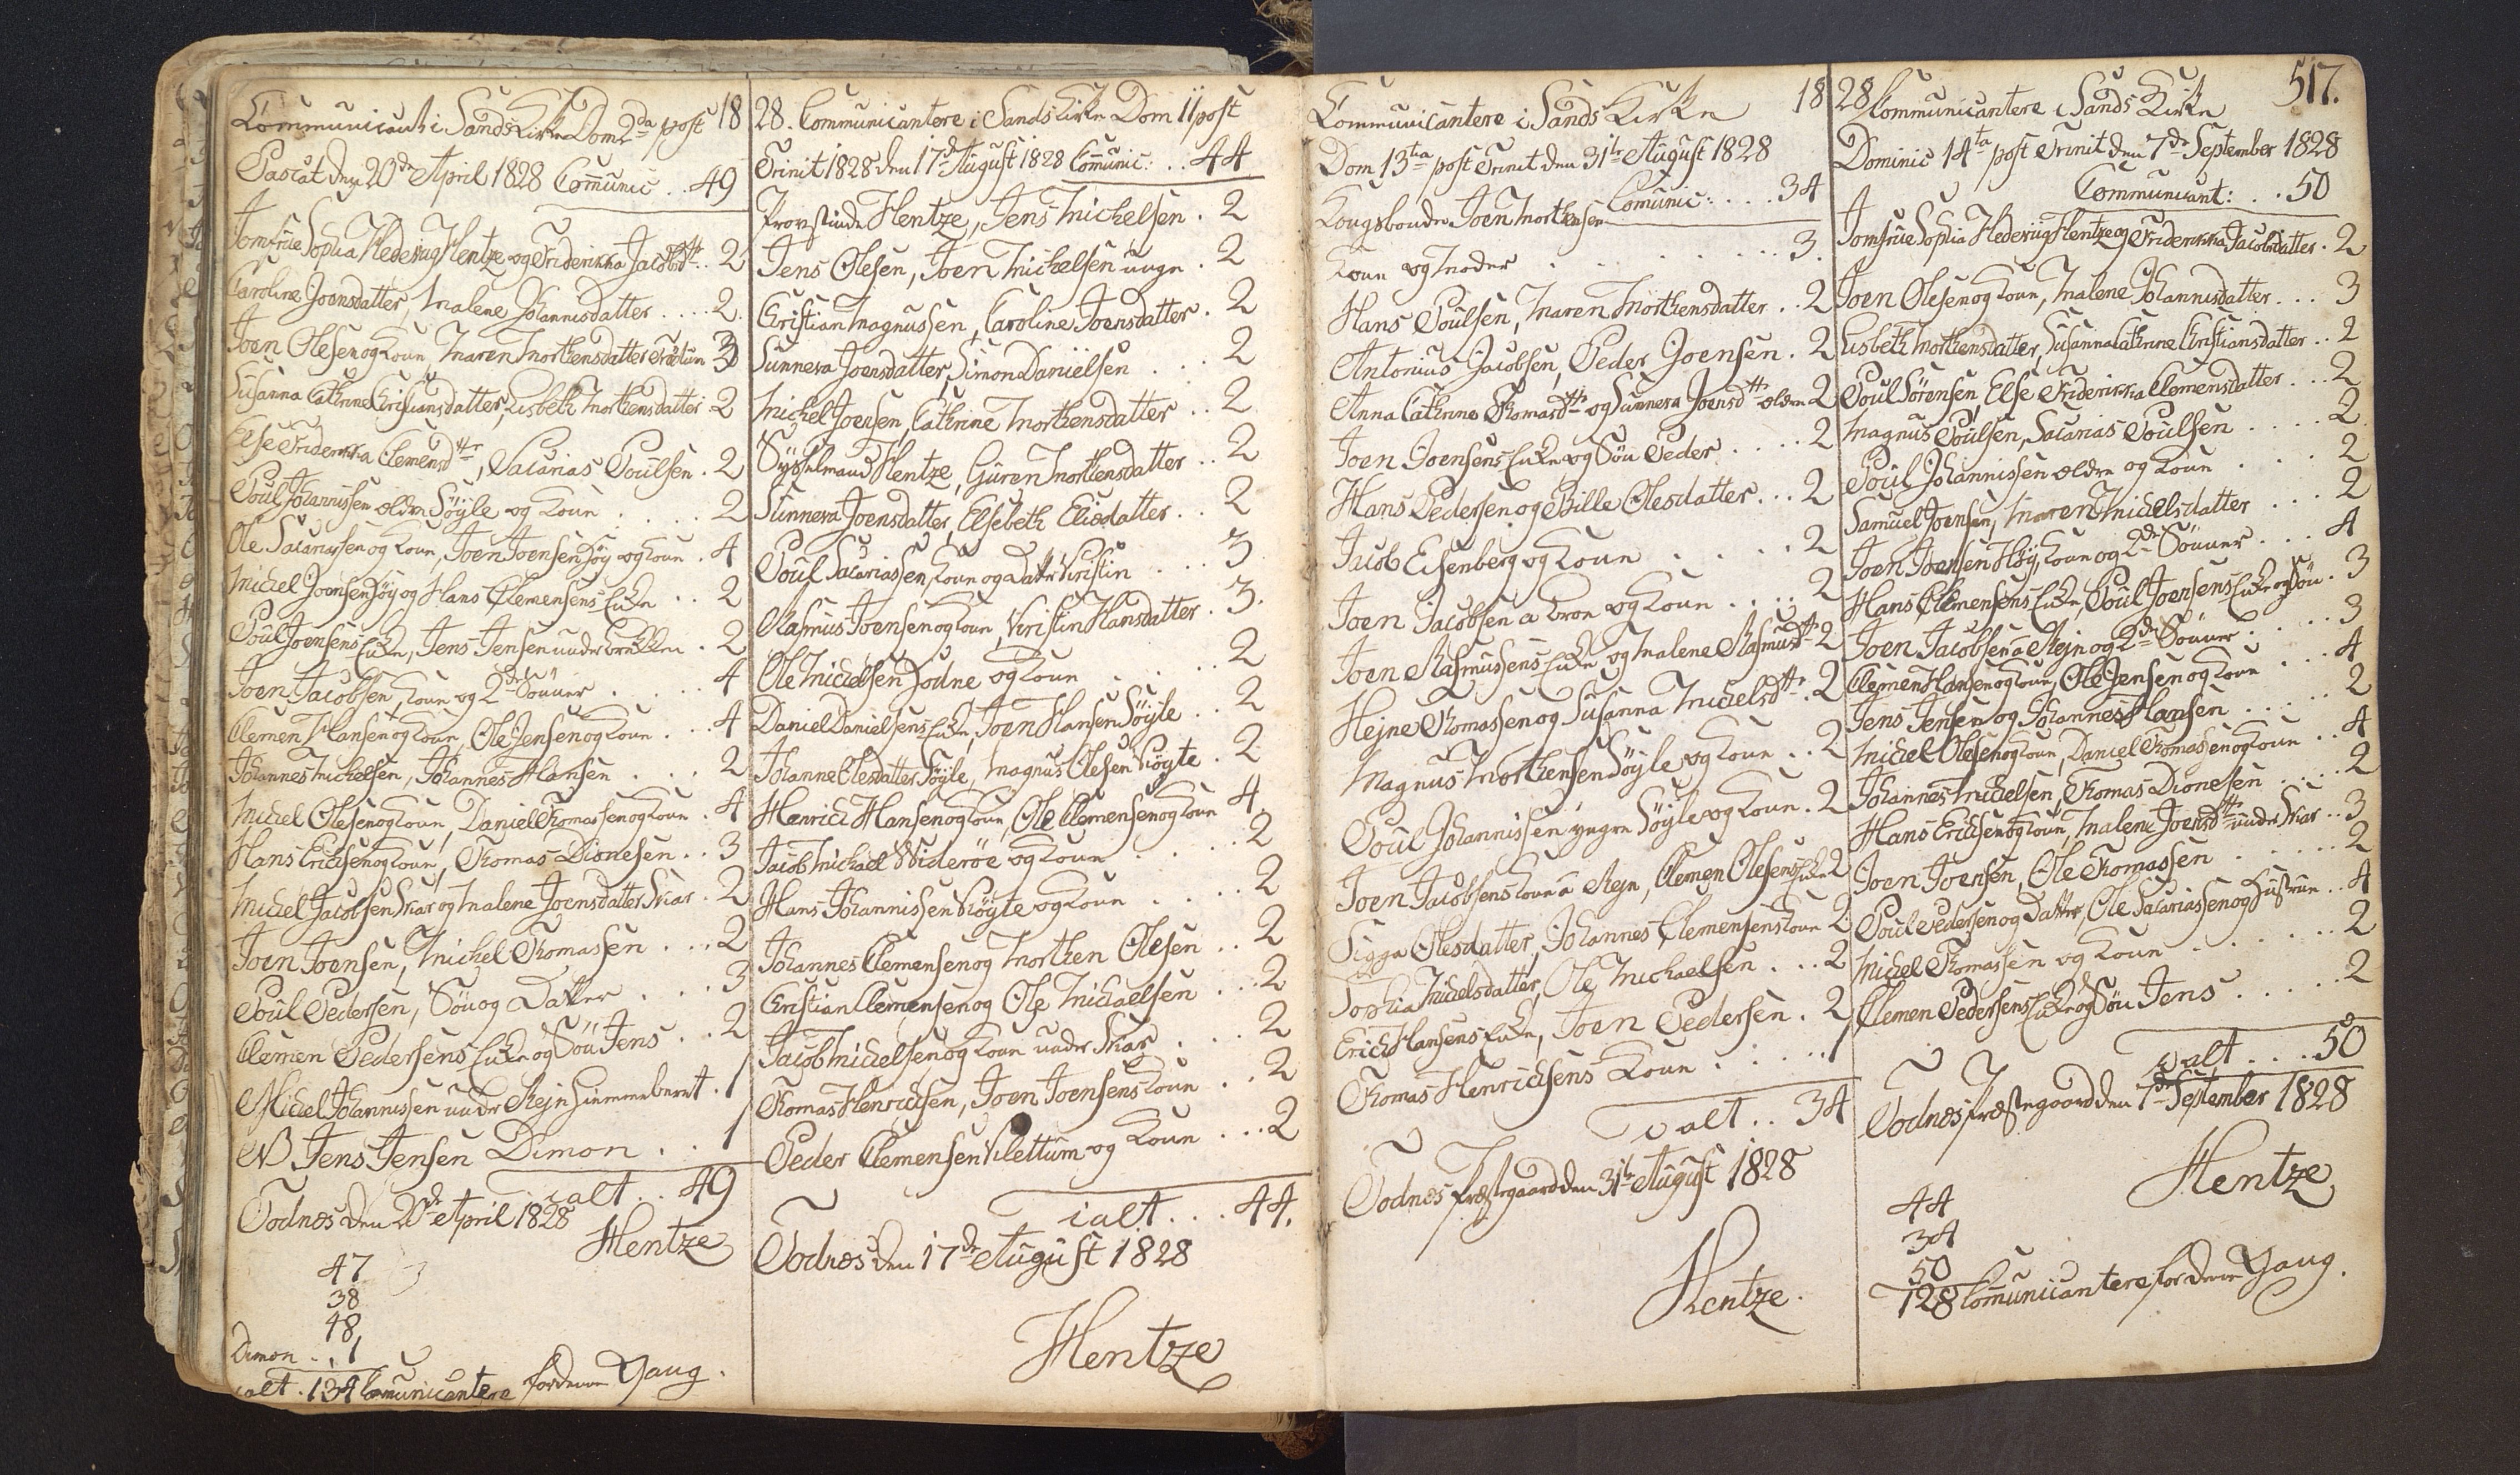 Communicants i Sands Kirke Dom 2da post 18
Pascat den 20de April 1828 Com̄unic .. 49
Jomfrue Sophia Hedevig Hentze og Friderikka Jacobsdttr .. 2
Caroline Joensdatter, Malene Johannisdatter .... 2
Joen Olesen og Kone, Maren Morthensdatter Trøllum 3
Susanna Cathrine Christiansdatter, Lisbeth Morthensdatter .. 2
Else Friderikka Clemensdttr, Sacarias Poulsen . 2
Poul Johannissen ældre Søyle og Kone .... 2
Ole Sacariassen og Kone, Joen Joensen Høy og Kone . 4
Michel Joensen Høy og Hans Clemensens Enke .. 2
Poul Joensens Enke, Jens Jensen under Brekken . 2
Joen Jacobsen, Kone og 2de Sönner .... 4
Clemen Hansen og Kone, Ole Jensen og Kone . .. 4
Johannes Michelsen, Johannes Hansen ... 2
Michel Olesen og Kone, Daniel Thomassen og Kone . 4
Hans Erichsen og Kone, Thomas Dionesen .. 3
Michel Jacobsen Skar og Malene Joensdatter Skar . 2
Joen Joensen, Michel Thomassen ... 2
Poul Pedersen, Sön og Datter ... 3
Clemen Pedersens Enke og Sön Jens .. 2
Michel Johannissen under Rejn hjemmeberet . 1
NB Jens Jensen Dimon .. 1
ialt .. 49
Todnæs den 20de April 1828
Hentze
47
38
48
Dimon .. 1
ialt . 134 Com̄unicantere for denne Gang .
28. Communicantere i Sands Kirke Dom 11 post
Trinit 1828 den 17de August 1828 Com̄unic: .. 44
Provstinde Hentze, Jens Michelsen . 2
Jens Olesen, Joen Michelsen unge . 2
Christian Magnussen, Caroline Joensdatter . 2
Sunneva Joensdatter, Simon Danielsen .. 2
Michel Joensen, Cathrine Morthensdatter .. 2
Sysselmand Hentze, Guren Morthensdatter .. 2
Sunneva Joensdatter, Elsebeth Eliasdatter .. 2
Poul Sacariassen, Kone og Datter Kristin ... 3
Rasmus Joensen og Kone, Kristin Hansdatter . 3.
Ole Michelsen Jodne og Kone .... 2
Daniel Danielsens Enke, Joen Hansen Søyle .. 2
Johanne Olesdatter Søyle, Magnus Olesen Kiøyte . 2
Henrich Hansen og Kone, Ole Clemensen og Kone 4
Jacob Michael Widerøe og Kone .... 2
Hans Johannissen Kiøyte og Kone .... 2
Johannes Clemensen og Morthen Olesen .. 2
Christian Clemensen og Ole Michaelsen ... 2
Jacob Michelsen og Kone under Skar ... 2
Thomas Henrichsen, Joen Joensens Kone .. 2
Peder Clemensen Klettum og Kone ... 2
ialt ... 44.
Todnæs den 17de August 1828
Hentze
Communicantere i Sands Kirke 18
Dom 13tia post Trinit den 31te August 1828
Com̄unic: .... 34
Kongsbonde Joen Morthensen
Kone og Moder ....... 3.
Hans Poulsen, Maren Morthensdatter .. 2
Antonius Jacobsen, Peder Joensen . 2
Anna Cathrine Thomasdttr og Sunneva Joensdttr ældre 2
Joen Joensens Enke og Sön Peder ... 2
Hans Pedersen og Bille Olesdatter ... 2
Jacob Eisenberg og Kone .... 2
Joen Jacobsen a Broe og Kone .... 2
Joen Rasmussens Enke og Malene Rasmusdttr 2
Hejne Thomassen og Susanna Michelsdttr . 2
Magnus Morthensen Søyle og Kone .. 2
Poul Johannissen yngre Søyle og Kone . 2
Joen Jacobsens Kone a Rejn, Clemen Olesens Enke 2
Sigga Olesdatter, Johannes Clemensens Kone 2
Sophia Michelsdatter, Ole Michaelsen ... 2
Erich Hansens Enke, Joen Pedersen . 2
Thomas Henrichsens Kone ..... 1
ialt .. 34
Todnæs Præstegaard den 31te August 1828
Hentze.
28 Communicantere i Sands Kirke 517.
Dominic 14ta post Trinit den 7de September 1828
Communicant: .. 50
Jomfrue Sophia Hedevig Hentze og Friderikka Jacobsdatter . 2
Joen Olesen og Kone, Malene Johannisdatter ... 3
Lisbeth Morthensdatter, Susanna Cathrine Christiansdatter .. 2
Poul Sörensen, Else Friderikka Clemensdatter ... 2
Magnus Poulsen, Sacarias Poulsen .... 2
Poul Johannissen ældre og Kone ... 2
Samuel Joensen, Maren Michelsdatter ... 2
Joen Joensen Høy, Kone og 2de Sönner ... 4
Hans Clemensens Enke, Poul Joensens Enke og Sön . 3
Joen Jacobsen a Rejn og 2de Sönner .... 3
Clemen Hansen og Kone, Ole Jensen og Kone ... 4
Jens Jensen og Johannes Hansen .... 2
Michel Olesen og Kone, Daniel Thomassen og Kone .. 4
Johannes Michelsen, Thomas Dionesen .... 2
Hans Erichsen og Kone, Malene Joensdttr under Skar .. 3
Joen Joensen, Ole Thomassen ..... 2
Poul Pedersen og Datter, Ole Sacariassen og Hustrue .. 4
Michel Thomassen og Kone ..... 2
Clemen Pedersens Enke og Sön Jens ..... 2
ialt ... 50
Todnæs Præstegaard den 7de September 1828
Hentze
44
34
50
128 Com̄unicantere for denne Gang .